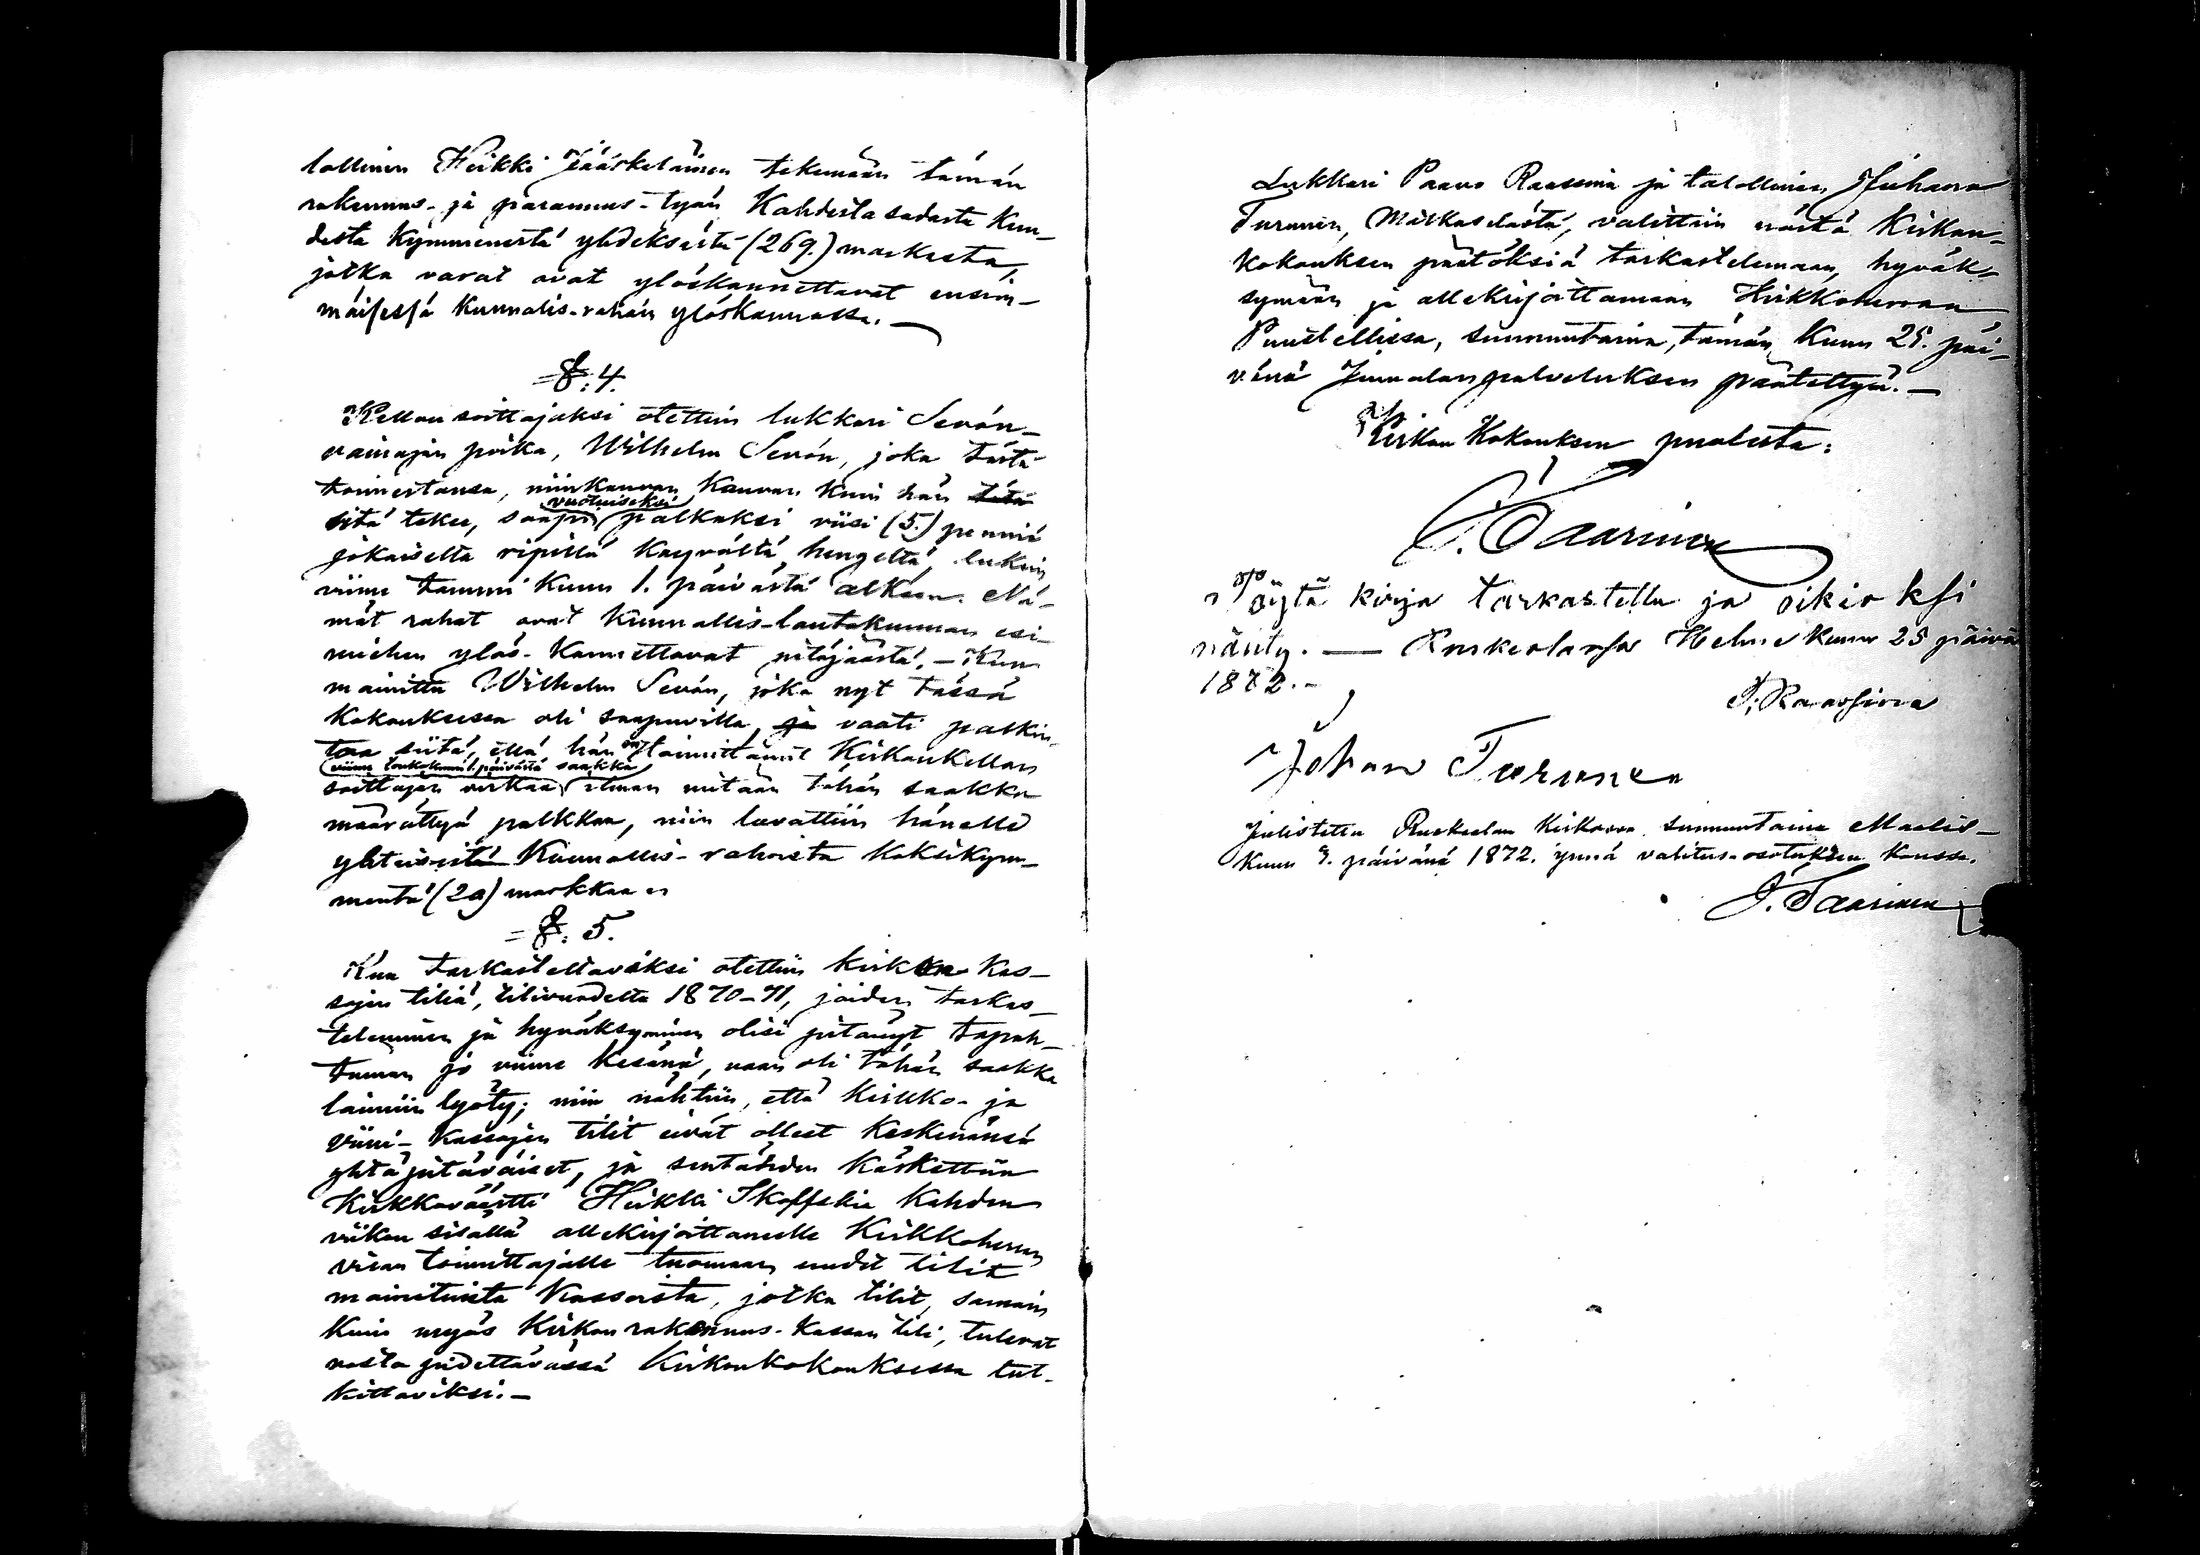 lollinen Heikki Jääskeläinen tekemään tämän
rakennus- ja parannus-työn Kahdesta sadasta Kuu-
desta Kymmenestä yhdeksästä (269.) markasta,
jotka varat ovat ylöskannettavat ensim-
mäisessä Kunnalis-rahan ylöskannossa. —
= §: 4.
Kellon soittajaksi otettiin lukkari Sevón-
vainajan poika, Wilhelm Sevón, joka tästä
toimestansa, niinkauvan Kauvan kuin hän tätä
vuotuiseksi
sitä tekee, saapi palkaksi viisi (5.) penniä
jokaiselta ripillä Käyvältä hengeltä, lukein
viime Tammi Kuun 1. päivästä alkaen. Nä-
mät rahat ovat Kunnallis-lautakunnan esi-
miehen ylös-Kannettavat pitäjäästä. — Kun
mainittu Wilhelm Sevón, joka nyt tässä
Kokouksessa oli saapuvilla, ja vaati palkin-
toa siitä, että hän on toimittanut Kirkonkellon
viime toukokuun 1. päivästä saakka
soittajan virkaa ilman mitään tähän saakka
määrättyä palkkaa, niin luvattiin hänelle
yhteisistä Kunnallis-rahoista Kaksikym-
mentä (20) markkaa
= §: 5.
Kun tarkasteltavaksi otettiin kirkon Kas-
sojen tiliä, tilivuodelta 1870-71, joiden tarkas-
teleminen ja hyväksyminen olisi pitänyt tapah-
tuman jo viime Kesänä, vaan oli tähän saakka
laimiin lyöty; niin nähtiin, että Kirkko- ja
viini-Kassojen tilit eivät olleet Keskenänsä
yhtäpitäväiset, ja sentähden Käskettiin
Kirkkoväärtti Heikki Skoffelia Kahden
viikon sisällä allekirjoittaneelle Kirkkoherran
viran toimittajalle tuomaan uudet tilit
mainituista Kassoista, jotka tilit, samoin
Kuin myös Kirkon rakennus-Kassan tili, tulevat
vasta pidettävässä Kirkonkokouksessa tut-
kittaviksi. —
Lukkari Paavo Raassina ja talollinen Juhana
Turunen, Matkaselästä, valittiin näitä Kirkon-
kokouksen päätöksiä tarkastelemaan, hyväk-
symään ja allekirjoittamaan Kirkkoherran
Puustellissa, sunnuntaina, tämän Kuun 25. päi-
vänä Jumalanpalveluksen päätettyä. —
Kirkon Kokouksen puolesta:
J. Taarinen
Pöytä kirja tarkastettu ja oikiaksi
näänty. — Ruskealassa Helme Kuun 25 päivä
1872. -
P: Raassina
Johan Turunen
Julistettu Ruskealan Kirkossa sunnuntaina Maalis-
Kuun 3. päivänä 1872. ynnä valitus-osotuksen kanssa.
J. Taarinen